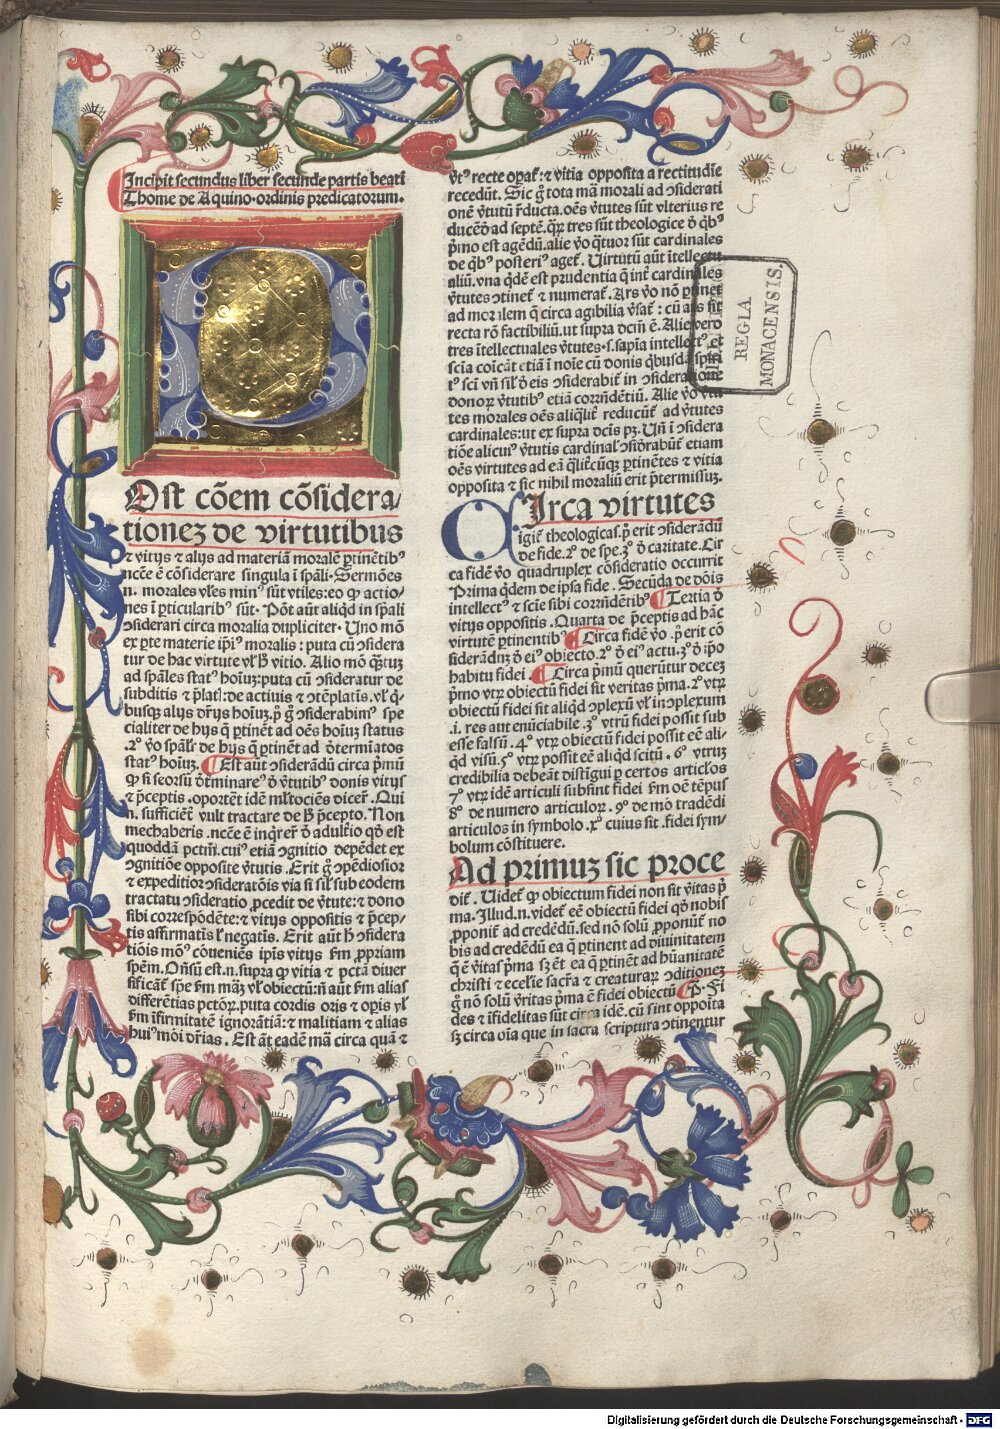 Incipit secundus liber secunde partis beati
Thome de Aquino·ordinis predicatorum.
Ost cõem cõsidera/
tionez de virtutibus
⁊ vitijs ⁊ alijs ad materiã moralẽ ꝑtinẽtibꝰ
ncc̃e ẽ cõsiderare singula ĩ sp̃ali·Sermões
n. morales vl̃es minꝰ sũt vtiles:eo ꝙ actio/
nes ĩ ꝑticularibꝰ sũt. Põt aũt aliqd in sp̃ali
ↄsiderari circa moralia dupliciter. Uno mõ
ex ꝑte materie ip̃iꝰ moralis : puta cũ ↄsidera
tur de hac virtute vl̃ h̾ vitio. Alio mõ q̃tuꝫ
ad sp̃ales statꝰ hoiũꝫ:puta cũ ↄsideratur de
subditis ⁊ p̃lat̃:de actiuis ⁊ ↄtẽplatis. vl̃ q̾
busqꝫ alijs dr̃ijs hoiuꝫ. p̾ g̊ ↄsiderabimꝰ spe
cialiter de hijs q̃ ꝑtinẽt ad oẽs hoiuꝫ status
.2º v̾o sp̃al̃ de hijs q̃ ꝑtinẽt ad d̾terminatos
statꝰ hoiuꝫ. Est aũt ↄsiderãdũ circa p̾mũ
ꝙ si seorsũ d̾tminareꝰ d̾ v̾tutibꝰ donis vitijs
⁊ p̃ceptis. oportẽt idẽ ml̃tociẽs dicer̃. Qui
n. sufficiẽt̃ vult tractare de h̾ p̃cepto. Non
mechaberis. ncc̃e ẽ inq̾rer̃ d̾ adult̾io qd̾ est
quoddã pctm̃. cuiꝰ etiã ↄgnitio depẽdet ex
ↄgnitiõe opposite v̾tutis. Erit g̊ ↄpẽdiosior
⁊ expeditior ↄsideratõis via si sil̃ sub eodem
tractatu ↄsideratio ꝓcedit de v̾tute:⁊ dono
sibi correspõdẽte:⁊ vitijs oppositis ⁊ p̃cep/
tis affirmatis l̃ negatis. Erit aũt h̾ ↄsidera
tiõis modꝰ cõueniẽs ip̃is vitijs fm ꝓpriam
sp̃em. Oñsũ est.n. supra ꝙ vitia ⁊ pctã diuer
sificãt̃ spe fm maꝫ vl̃ obiectũ:ñ aũt fm alias
differẽtias pctõꝝ. puta cordis oris ⁊ oꝑis vl̃
fm ĩfirmitatẽ ignorãtiã:⁊ malitiam ⁊ alias
huiꝰmõi dr̃ias. Est aũt eadẽ mã circa quã ⁊
v̾tꝰ recte opat̃:⁊ vitia opposita a rectitudĩe
recedũt. Sic g̊ tota mã morali ad ↄsiderati
onẽ v̾tutũ r̃ducta. oẽs v̾tutes sũt vlterius re
ducẽde ad septẽ. qꝝ tres sũt theologice d̾ qb̾ꝰ
p̾mo est agẽdũ. alie v̾o q̃tuor sũt cardinales
de qb̾ꝰ posteriꝰ aget̃. Uirtutũ aũt ĩtellectu
aliũ. vna qdẽ est prudentia q̃ int̾ cardinales
v̾tutes ↄtinet̃ ⁊ numerat̃. Ars v̾o nõ ꝑtinet
ad moralem q̃ circa agibilia v̾sat̃ : cũ ars sit
recta rõ factibiliũ. ut supra dcm̃ ẽ. Alie vero
tres ĩtellectuales v̾tutes·s. sapĩa intellectꝰ et
scĩa coĩcãt etiã ĩ noĩe cũ donis qb̾usdã spirĩ
tꝰ sci vñ sil̃ d̾ eis ↄsiderabit̃ in ↄsideratione
donoꝝ v̾tutibꝰ etiã corrñdẽtiũ. Alie v̾o v̾tu
tes morales oẽs aliq̾lit̾ reducũt̃ ad v̾tutes
cardinales:ut ex supra dcis pꝫ. Uñ ĩ ↄsidera
tiõe alicuiꝰ v̾tutis cardinal̃ ↄsid̾rabũt̃ etiam
oẽs virtutes ad eã q̾lit̾cũqꝫ ꝑtinẽtes ⁊ vitia
opposita ⁊ sic nihil moraliũ erit p̃termissuꝫ.
CIrca virtutes
igit̃ theologicas. p̾ erit ↄsiderãdũ
de fide. 2º de spe. 3º d̾ caritate. Cir
ca fidẽ v̾o quadruplex cõsideratio occurrit
Prima qdem de ipsa fide. Secũda de dõis
intellectꝰ ⁊ scĩe sibi corrñdẽtibꝰ Tertia d̾
vitijs oppositis. Quarta de p̃ceptis ad hãc
virtutẽ ꝑtinentibꝰ Circa fidẽ v̾o . p̾ erit cõ
siderãduꝫ d̾ eiꝰ obiecto. 2º d̾ eiꝰ actu. 3º d̾ ip̃o
habitu fidei . Circa p̾mũ querũtur decez
p̾mo vtꝝ obiectũ fidei sit veritas p̾ma. 2º vtꝝ
obiectũ fidei sit aliqd ↄplexũ vl̃ inↄplexum
.i. res aut enũciabile. 3º vtrũ fidei possit sub
esse falsũ. 4º vtꝝ obiectũ fidei possit eẽ ali/
qd visũ. 5º vtꝝ possit eẽ aliqd scitũ . 6º vtruꝫ
credibilia debeãt distĩgui ꝑ certos articl̃os
7º vtꝝ idẽ articuli subsint fidei fm oẽ tẽpus
8º de numero articuloꝝ. 9º de mõ tradẽdi
articulos in symbolo . xº cuius sit . fidei sym/
bolum cõstituere.
Ad primuꝫ sic proce
dit̃ . Uidet̃ ꝙ obiectum fidei non sit v̾itas p̾
ma. Illud. n. videt̃ eẽ obiectũ fidei qd̾ nobis
ꝓponit̃ ad credẽdũ. sed nõ solũ ꝓponũt̃ no
bis ad credẽdũ ea q̃ ꝑtinent ad diuinitatem
q̃ ẽ v̾itas p̾ma sꝫ ẽt ea q̃ ꝑtinẽt ad hũanitatẽ
christi ⁊ eccl̃ie sacr̃a ⁊ creaturaꝝ ↄditionez
g̊ nõ solũ v̾ritas p̾ma ẽ fidei obiectũ P̾. Fi
des ⁊ ĩfidelitas sũt circa idẽ. cũ sint opposita
sꝫ circa oĩa que in sacra scriptura ↄtinentur
REGIA
MONACENSIS.
Digitalisierung gefördert durch die Deutsche Forschungsgemeinschaft - DFG